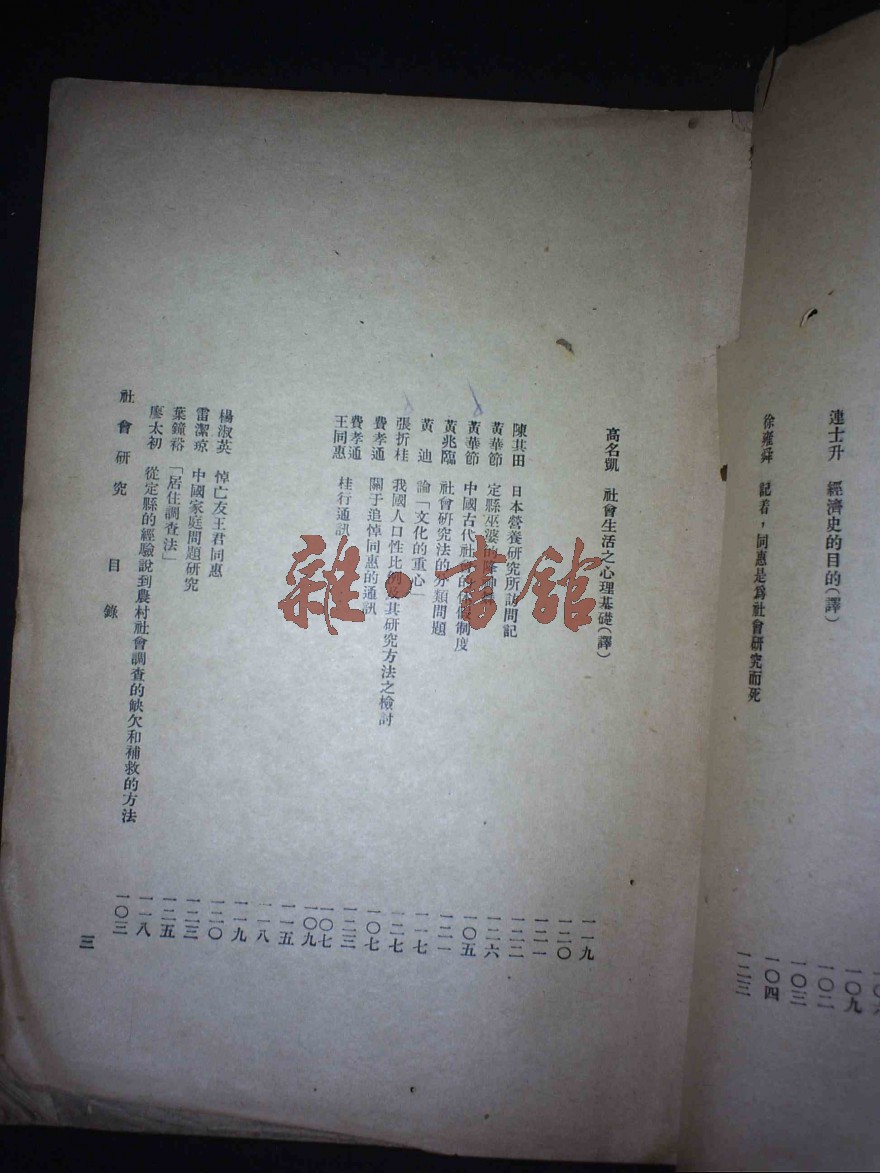 連士升　經濟史的目的(譯)
徐雍舜　記着，同惠是爲社會研究而死
一〇九
一〇二
一〇三
一〇四
一二三
高名凱　社會生活之心理基礎(譯)
陳其田　日本營養研究所訪問記
黃華節　定縣巫婆的
黃華節　中國古代社的制度
黃兆臨　社會研究法的分類問題
黃　迪　論「文化的重心」
張折桂　我國人口性比例及其研究方法之檢討
費孝通　關于追悼同惠的通訊
費孝通
王同惠　桂行通訊
楊淑英　悼亡友王君同惠
雷潔琼　中國家庭問題研究
葉鐘裕　「居住調查法」
廖太初　從定縣的經驗說到農村社會調查的缺欠和補救的方法
一一九
一二〇
一二一
一二二
一二六
一〇五
一二一
一一七
一二七
一〇七
一二三
一〇七
一〇九
一一五
一一八
一一九
一二〇
一二三
一二五
一一八
一〇三
社會研究　目錄
三
雜·書館